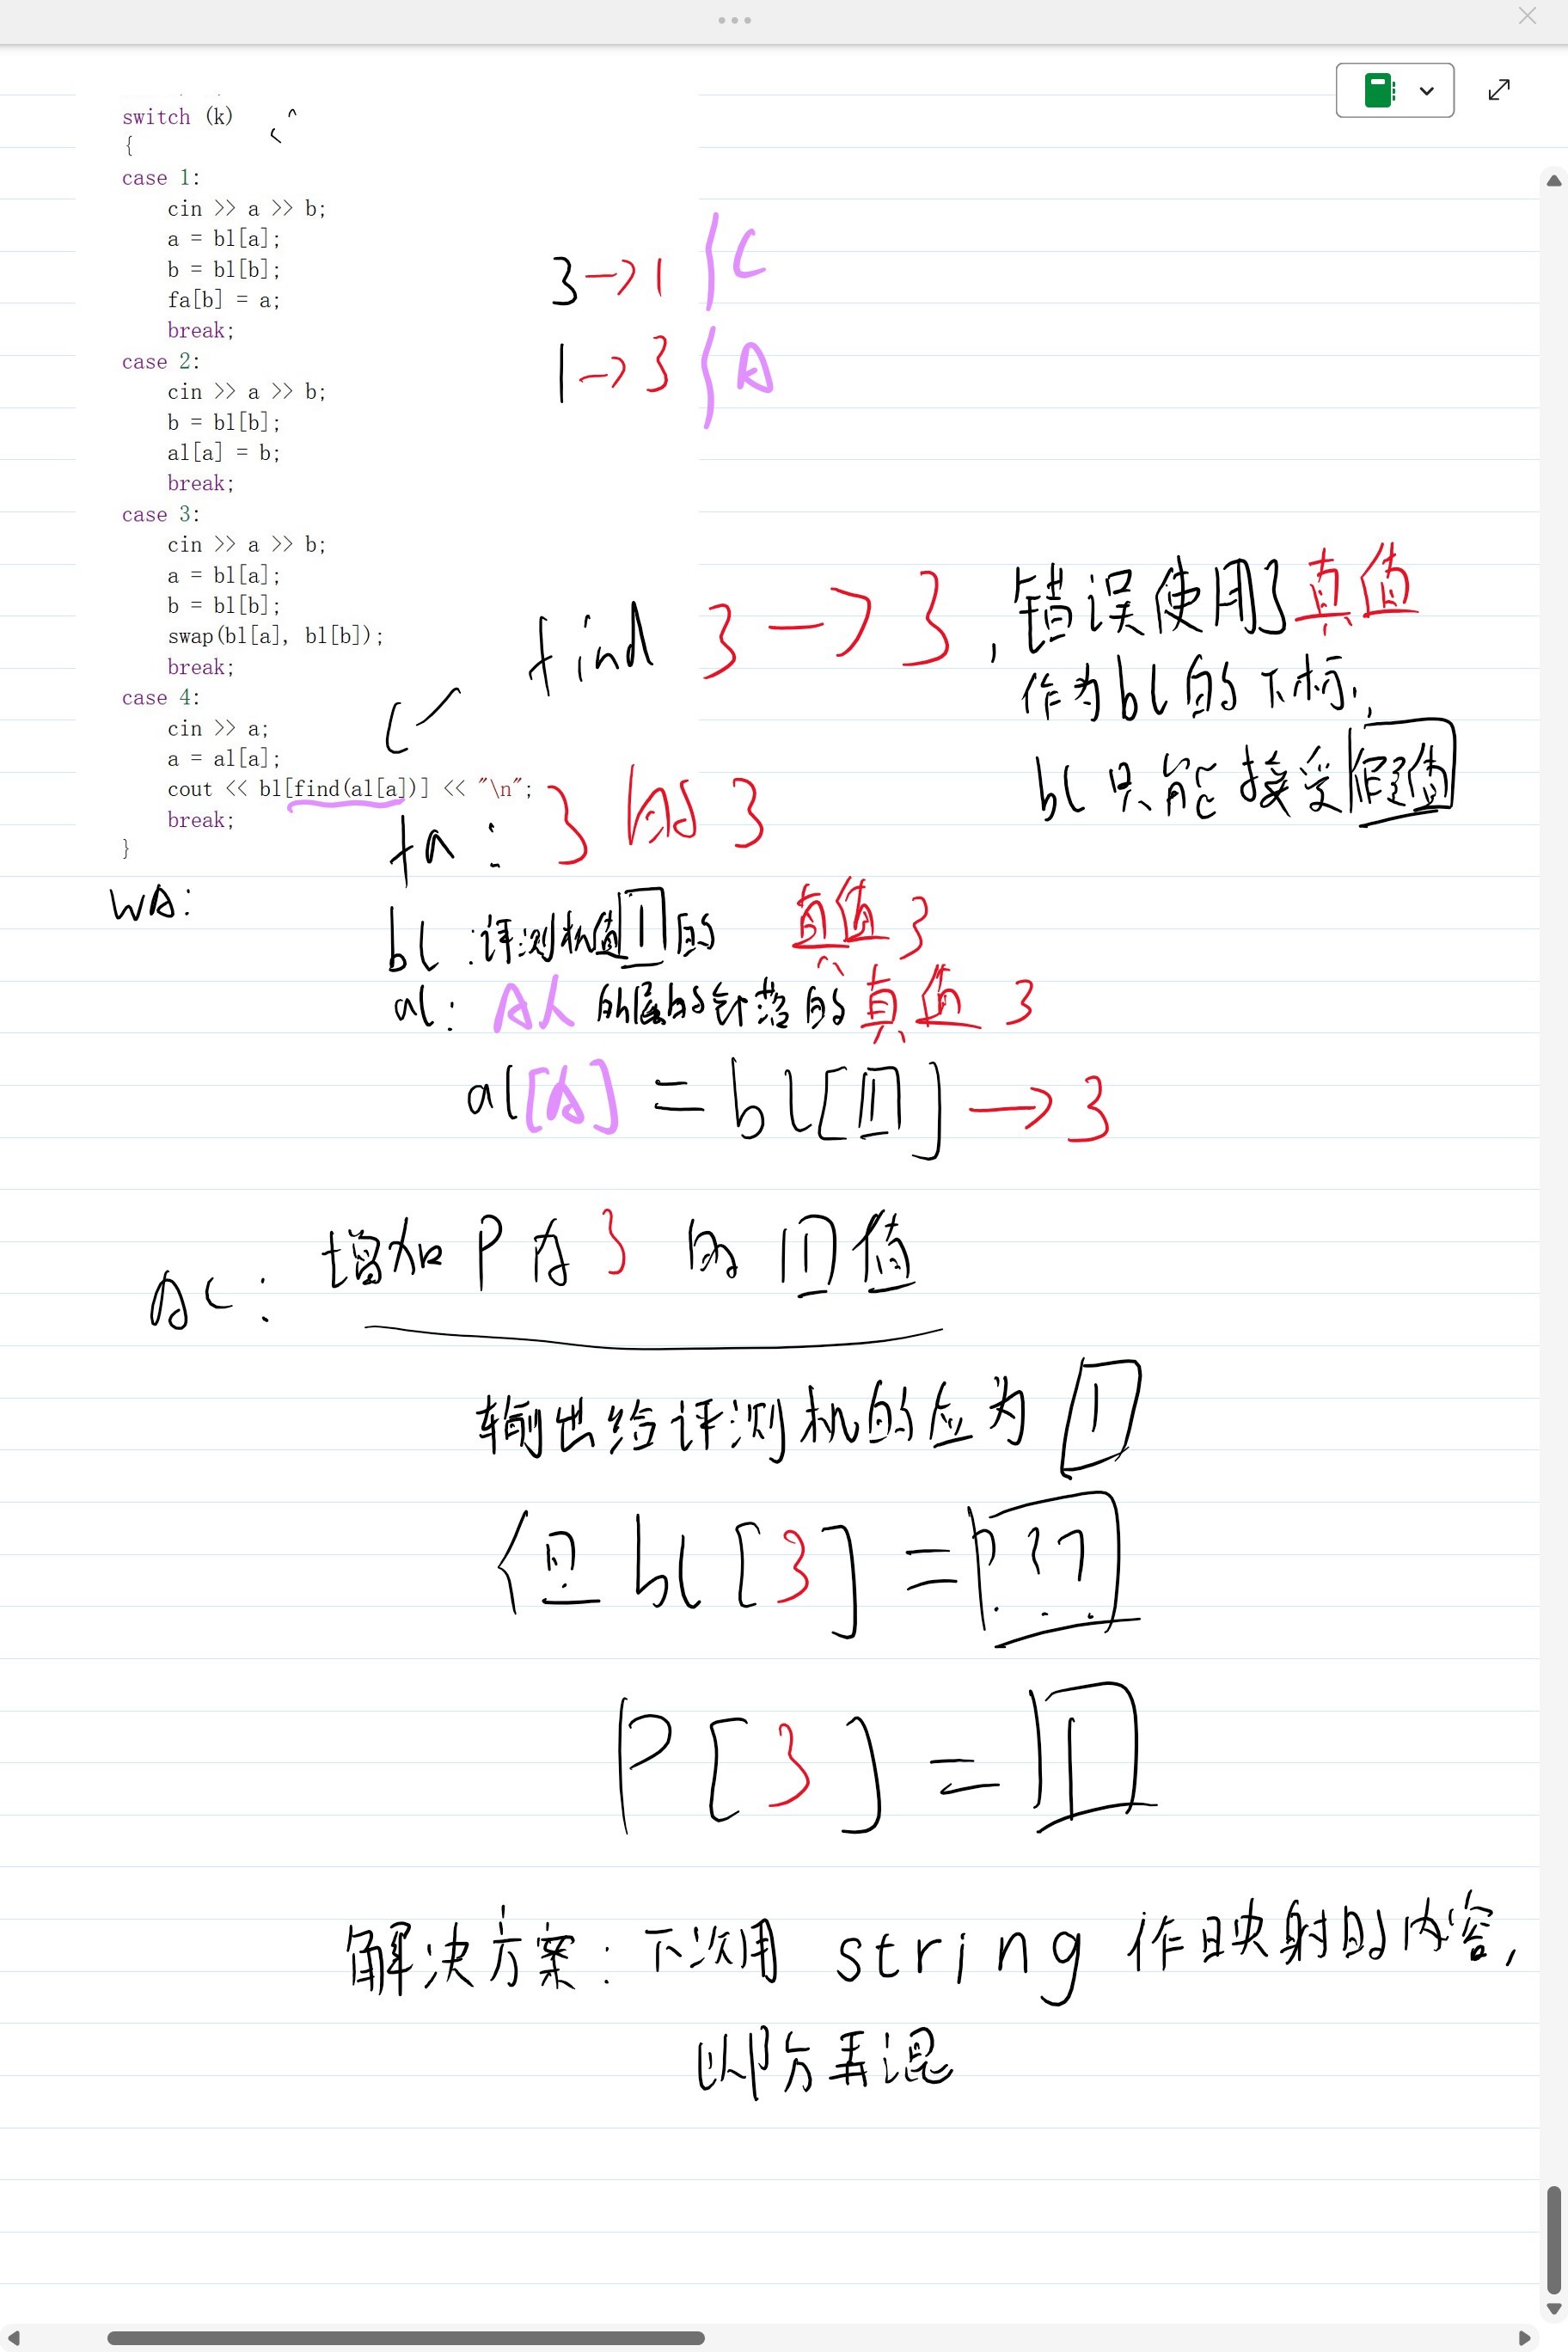 switch (k)
{
case 1:
cin >> a >> b;
a = bl[a];
b = bl[b];
fa[b] = a;
break;
case 2:
cin >> a >> b;
b = bl[b];
al[a] = b;
break;
case 3:
cin >> a >> b;
a = bl[a];
b = bl[b];
swap(bl[a], bl[b]);
break;
case 4:
cin >> a;
a = al[a];
cout << bl[find(al[a])] << "\n";
break;
}
3→1 C
1→3 A
find 3→3,错误使用了真值
作为bl的下标,
bl只能接受假值
WA:
fa: 3的3
bl:评测机值1的 真值3
al: A人 所属的针落的真值3
al[A] = bl[1] → 3
AC: 增加P存3的1值
输出给评测机的应为1
但 bl[3] = ???
P[3] = 1
解决方案:下次用 string 作映射的内容,
以防弄混